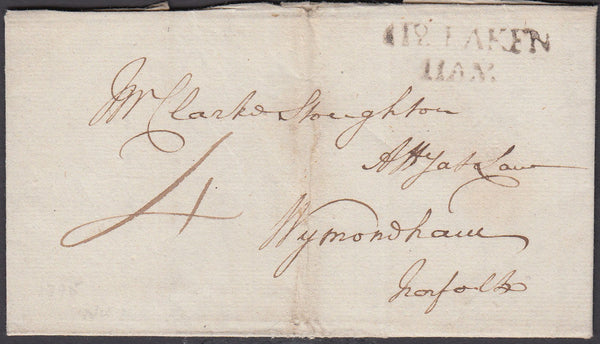 112 FAKEN
HAM
Mr Clarke Stoughton
4
Atty at Law
Wymondham
Norfolk